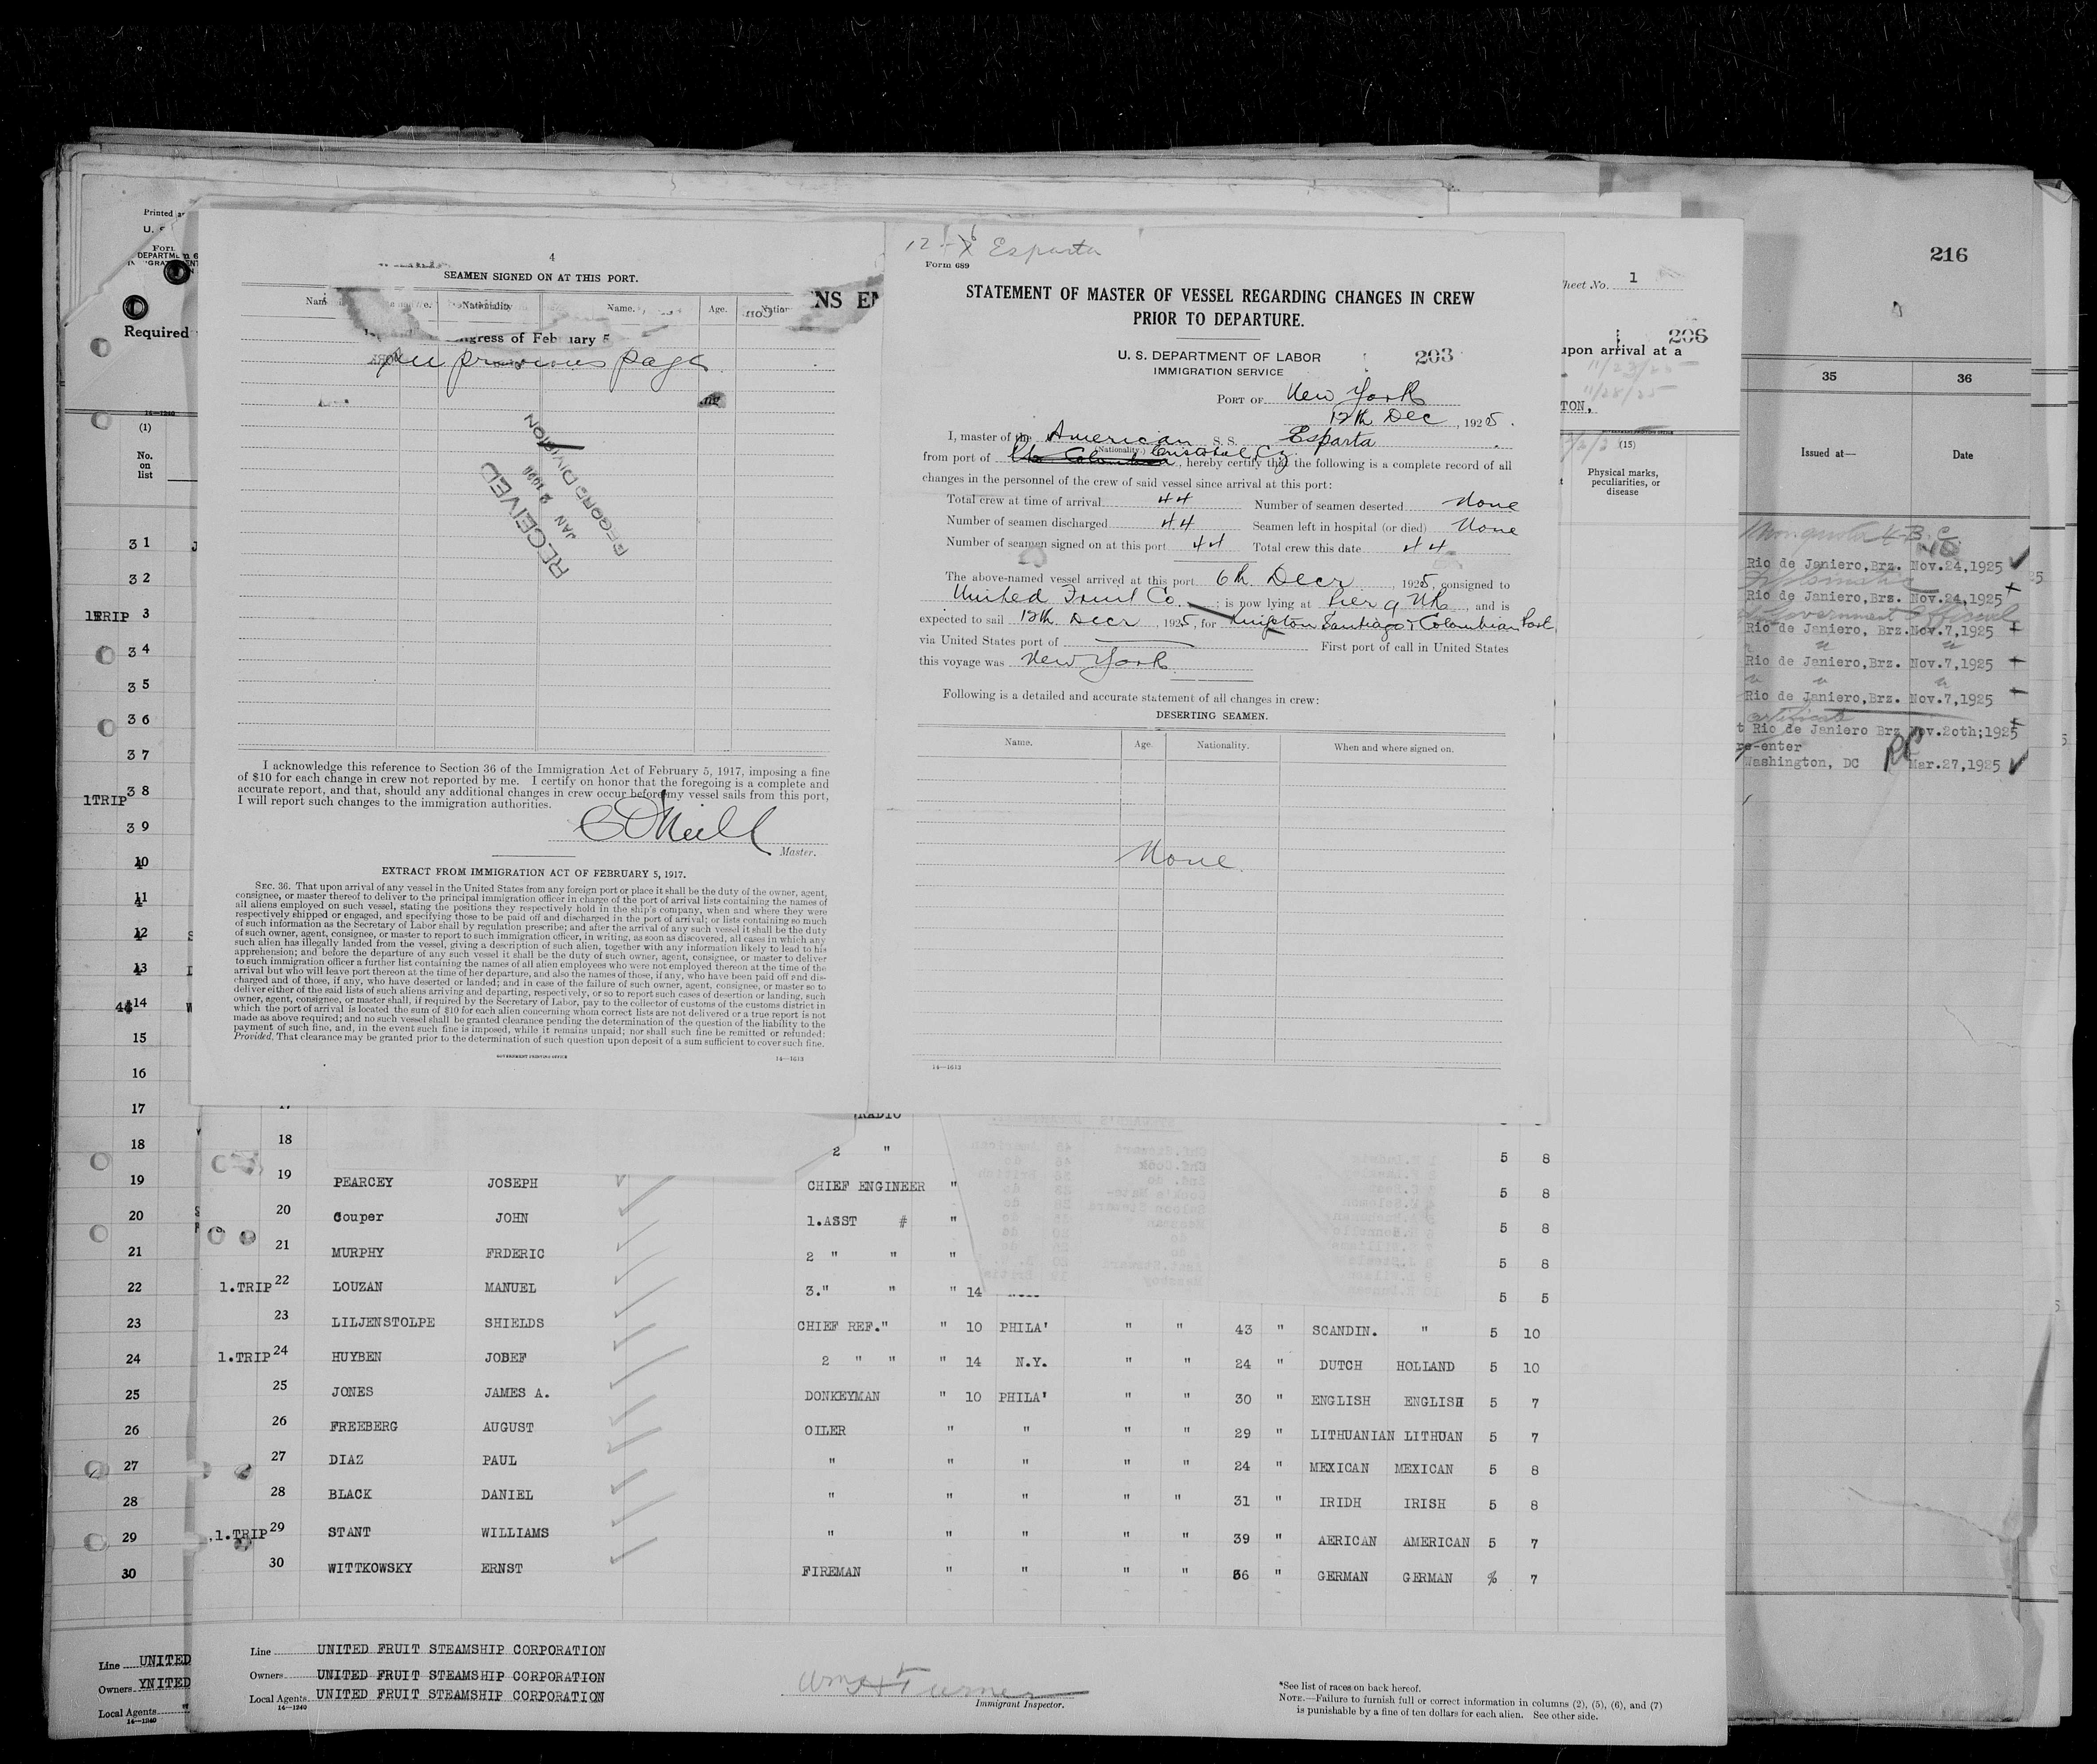 4
SEAMEN SIGNED ON AT THIS PORT.
Nationality
Name.
Age.
NS EN
see previous page
RECEIVED
JAN
RECORD DIVISION
I acknowledge this reference to Section 36 of the Immigration Act of February 5, 1917, imposing a fine
of $10 for each change in crew not reported by me. I certify on honor that the foregoing is a complete and
accurate report, and that, should any additional changes in crew occur before my vessel sails from this port,
I will report such changes to the immigration authorities.
O'Neill
Master.
EXTRACT FROM IMMIGRATION ACT OF FEBRUARY 5, 1917.
SEC. 36. That upon arrival of any vessel in the United States from any foreign port or place it shall be the duty of the owner, agent,
consignee, or master thereof to deliver to the principal immigration officer in charge of the port of arrival lists containing the names of
all aliens employed on such vessel, stating the positions they respectively hold in the ship's company, when and where they were
respectively shipped or engaged, and specifying those to be paid off and discharged in the port of arrival; or lists containing so much
of such information as the Secretary of Labor shall by regulation prescribe; and after the arrival of any such vessel it shall be the duty
of such owner, agent, consignee, or master to report to such immigration officer, in writing, as soon as discovered, all cases in which any
such alien has illegally landed from the vessel, giving a description of such alien, together with any information likely to lead to his
apprehension; and before the departure of any such vessel it shall be the duty of such owner, agent, consignee, or master to deliver
to such immigration officer a further list containing the names of all alien employees who were not employed thereon at the time of the
arrival but who will leave port thereon at the time of her departure, and also the names of those, if any, who have been paid off and dis-
charged and of those, if any, who have deserted or landed; and in case of the failure of such owner, agent, consignee, or master so to
deliver either of the said lists of such aliens arriving and departing, respectively, or so to report such cases of desertion or landing, such
owner, agent, consignee, or master shall, if required by the Secretary of Labor, pay to the collector of customs of the customs district in
which the port of arrival is located the sum of $10 for each alien concerning whom correct lists are not delivered or a true report is not
made as above required; and no such vessel shall be granted clearance pending the determination of the question of the liability to the
payment of such fine, and, in the event such fine is imposed, while it remains unpaid; nor shall such fine be remitted or refunded:
Provided, That clearance may be granted prior to the determination of such question upon deposit of a sum sufficient to cover such fine.
GOVERNMENT PRINTING OFFICE
14—1613
Esparta
Form 689
STATEMENT OF MASTER OF VESSEL REGARDING CHANGES IN CREW
PRIOR TO DEPARTURE.
U. S. DEPARTMENT OF LABOR 203
IMMIGRATION SERVICE
PORT OF New York
12th Dec, 1925.
I, master of the American S. S. Esparta
(Nationality.)
from port of Cristobal Cz., hereby certify that the following is a complete record of all
changes in the personnel of the crew of said vessel since arrival at this port:
Total crew at time of arrival 44 Number of seamen deserted None
Number of seamen discharged 44 Seamen left in hospital (or died) None
Number of seamen signed on at this port 44 Total crew this date 44
The above-named vessel arrived at this port 6th Decr, 1925, consigned to
United Fruit Co.; is now lying at Pier 9 , and is
expected to sail 12th Decr, 1925, for Kingston Santiago & Colombian Port
via United States port of First port of call in United States
this voyage was New York
Following is a detailed and accurate statement of all changes in crew:
DESERTING SEAMEN.
Name. Age. Nationality. When and where signed on.
None
14—1613
Sheet No. 1
206
upon arrival at a
11/28/25
(15)
Physical marks,
peculiarities, or
disease
216
35 36
Issued at— Date
Rio de Janiero,Brz. Nov.24,1925
Rio de Janiero,Brz. Nov.24,1925
Government Official
Rio de Janiero, Brz.Nov.7,1925
Rio de Janiero,Brz. Nov.7,1925
Rio de Janiero,Brz. Nov.7,1925
certificate
t Rio de Janiero Brz Nov.2oth;1925
re-enter
Washington, DC Mar.27,1925
Required
14—1240
(1)
No.
on
list
31
32
1TRIP 3
34
35
36
37
1TRIP 38
39
10
11
12
13
14
15
16
17
18
19
20
21
22
23
24
25
26
27
28
29
30
RADIO
18 2 " 5 8
19 PEARCEY JOSEPH CHIEF ENGINEER " 5 8
20 Couper JOHN 1.ASST # " 5 8
21 MURPHY FRDERIC 2 " " " 5 8
1.TRIP 22 LOUZAN MANUEL 3." " " 14 5 5
23 LILJENSTOLPE SHIELDS CHIEF REF." " 10 PHILA' " " 43 " SCANDIN. " 5 10
1.TRIP 24 HUYBEN JOBEF 2 " " " 14 N.Y. " " 24 " DUTCH HOLLAND 5 10
25 JONES JAMES A. DONKEYMAN " 10 PHILA' " " 30 " ENGLISH ENGLISH 5 7
26 FREEBERG AUGUST OILER " " " " 29 " LITHUANIAN LITHUAN 5 7
27 DIAZ PAUL " " " " " 24 " MEXICAN MEXICAN 5 8
28 BLACK DANIEL " " " " " 31 " IRIDH IRISH 5 8
1.TRIP 29 STANT WILLIAMS " " " " " 39 " AERICAN AMERICAN 5 7
30 WITTKOWSKY ERNST FIREMAN " " " " 36 " GERMAN GERMAN % 7
Line UNITED
Owners YNITED
Local Agents "
14—1240
Line UNITED FRUIT STEAMSHIP CORPORATION
Owners UNITED FRUIT STEAMSHIP CORPORATION
Local Agents UNITED FRUIT STEAMSHIP CORPORATION
14—1240
Turner
Immigrant Inspector.
*See list of races on back hereof.
NOTE.—Failure to furnish full or correct information in columns (2), (5), (6), and (7)
is punishable by a fine of ten dollars for each alien. See other side.